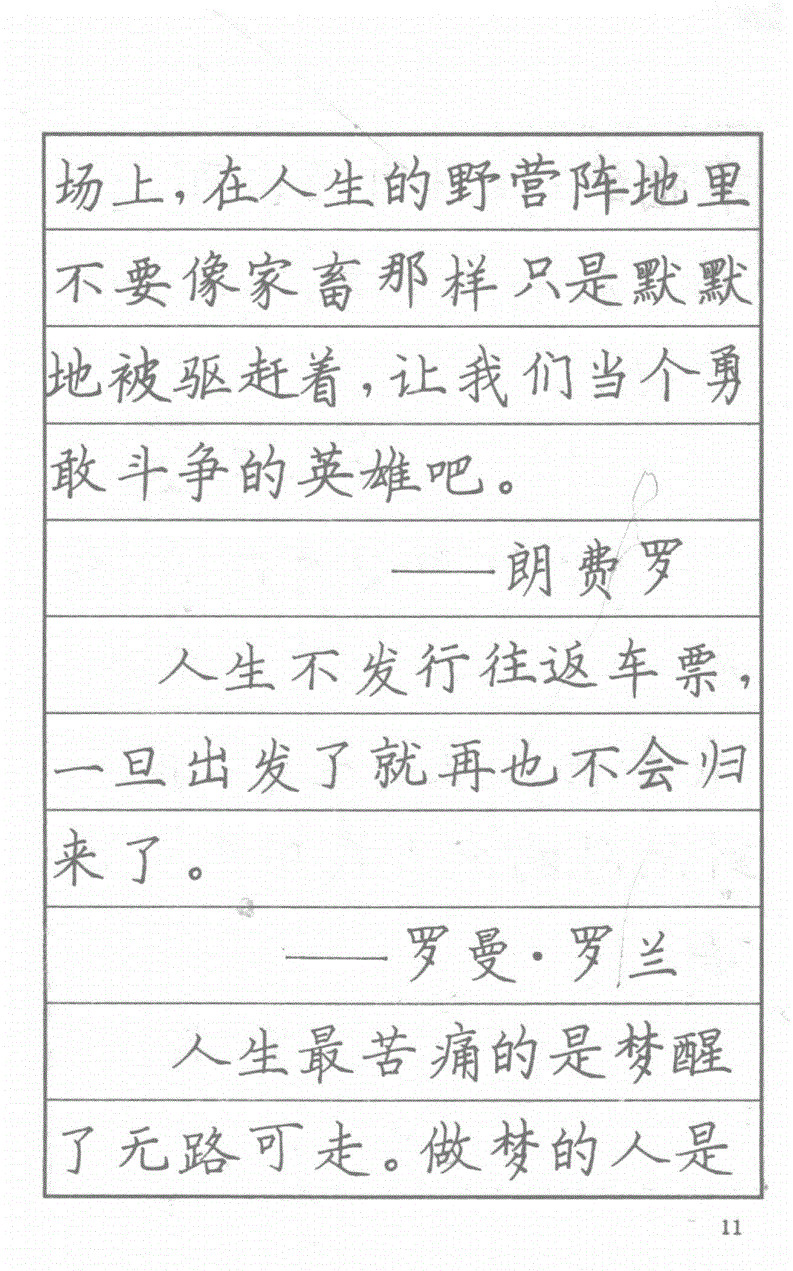 场上，在人生的野营阵地里
不要像家畜那样只是默默
地被驱赶着，让我们当个勇
敢斗争的英雄吧。
——朗费罗
人生不发行往返车票，
一旦出发了就再也不会归
来了。
——罗曼·罗兰
人生最苦痛的是梦醒
了无路可走。做梦的人是
11